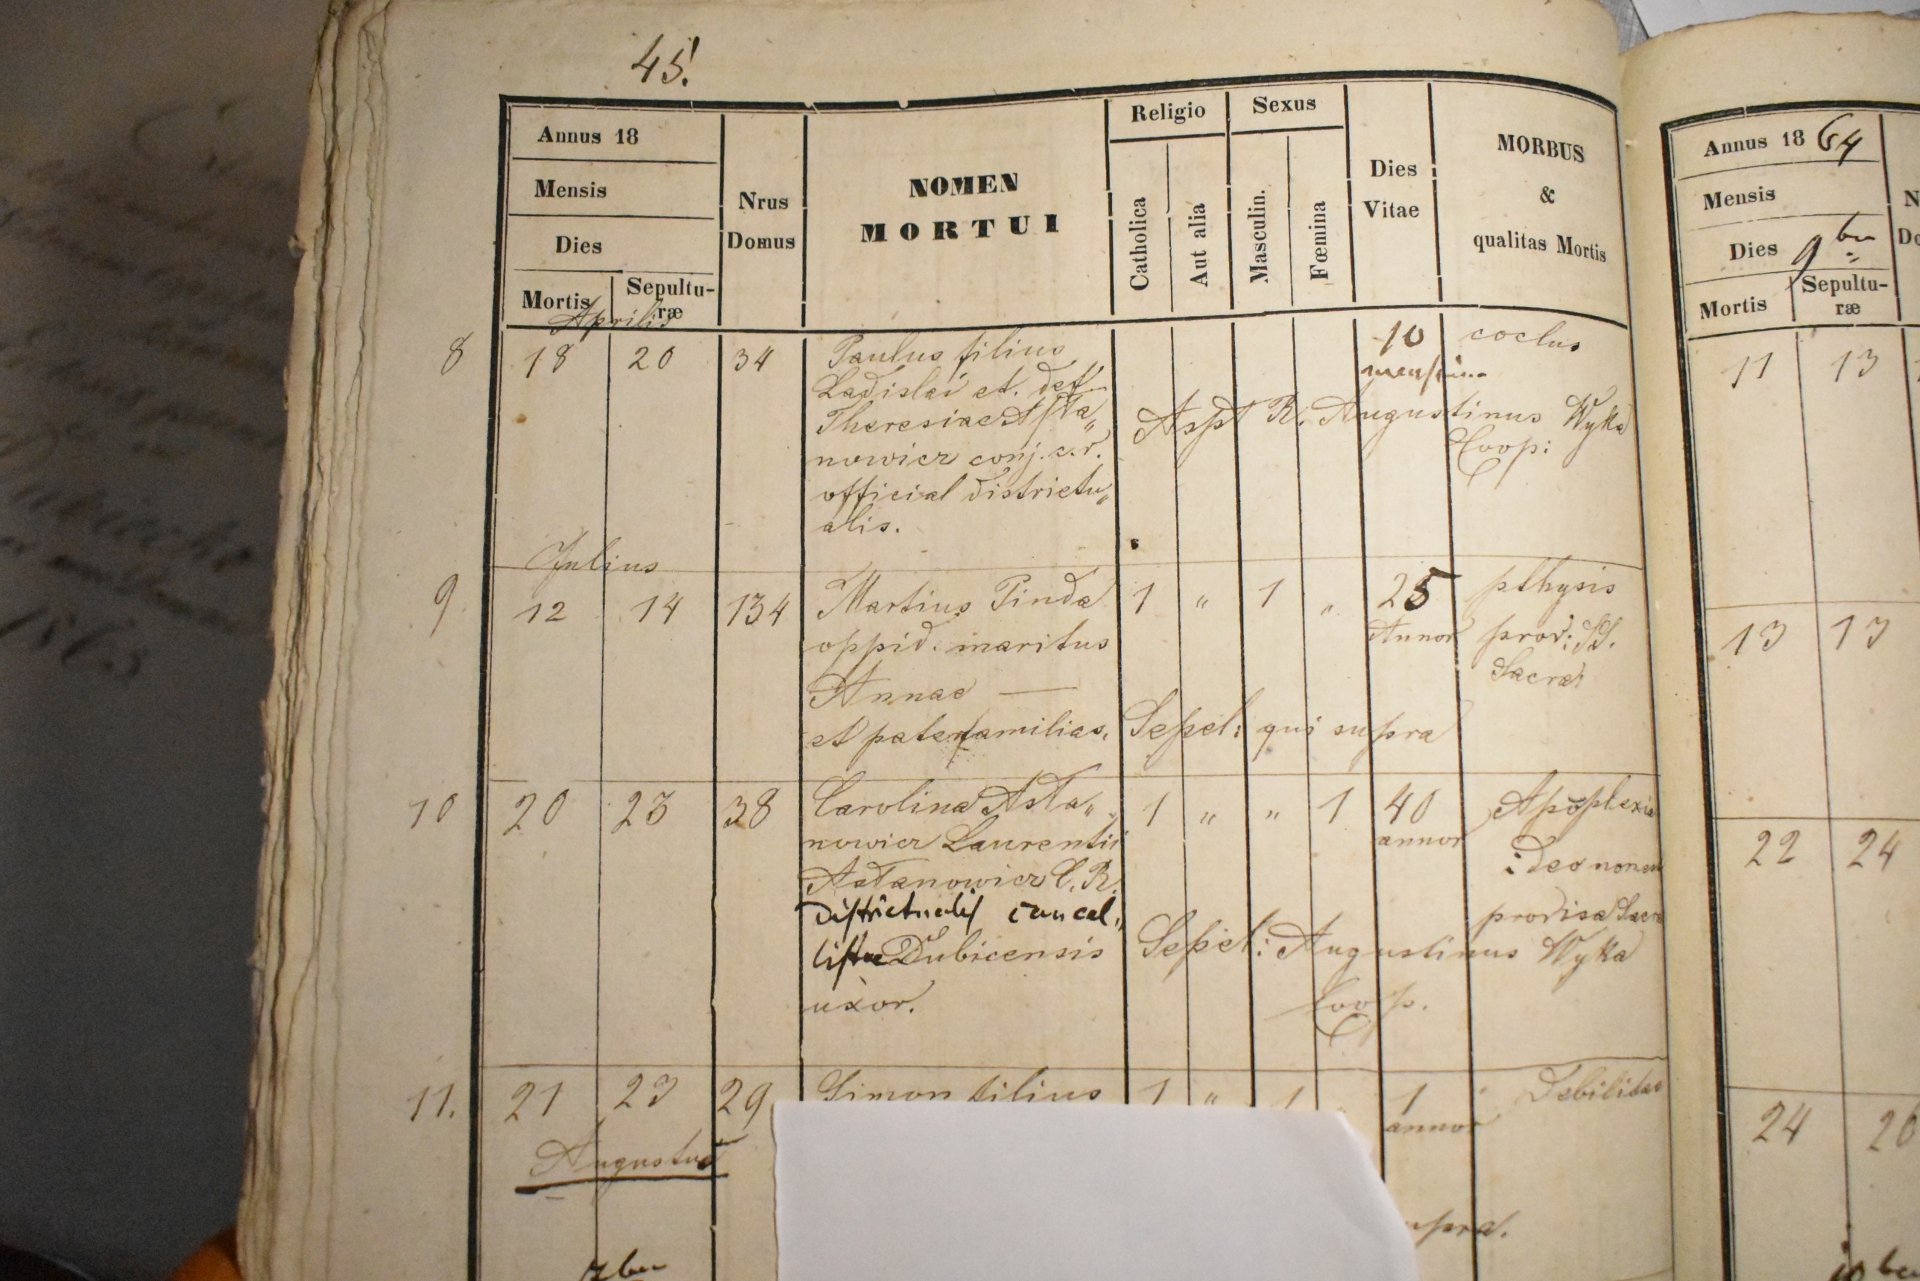 45.
Annus 18
Mensis
Dies
Mortis
Sepultu-
ræ
Nrus
Domus
NOMEN
MORTUI
Religio
Catholica
Aut alia
Sexus
Masculin.
Fœmina
Dies
Vitae
MORBUS
&
qualitas Mortis
Aprilis
8 18 20 34 Paulus filius 10 coclus
Ladislai et. def.
Theresiae Asta„
nowicz conj. c.r.
official districtu„
alis.
Aspt R. Augustinus Wyka
Coop:
Julius
9. 12 14 134 Martius Pinda 1 „ 1 „ 25 pthysis
oppid. maritus Annor prov: SS.
Annae — Sacra
et paterfamilias. Sepel: qui supra
10 20 23 38 Carolina Asta„ 1 „ „ 1 40 Apoplexia
nowicz Laurentii annor
Astanowicz C. R.
Districtualis cancel„
listae Dubicensis
uxor.
provisa Sacra
Sepel: Augustinus Wyka
Coop.
11. 21 23 29 Simon filius 1 „ 1 1 Debilitas
annor
Augustus
supra.
7ber
Annus 1864
Mensis
Dies 9ber
Mortis
Sepultu-
ræ
11 13
13 13
22 24
24 26